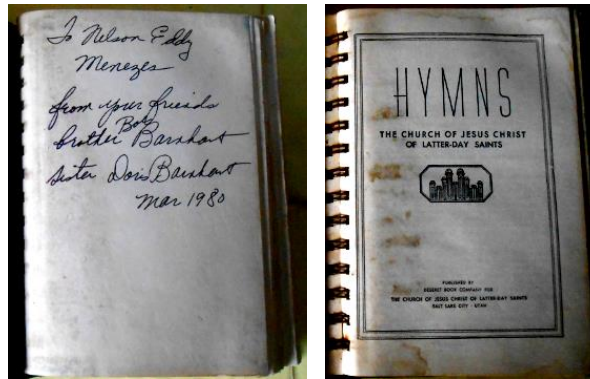 To Nelson Eddy
Menezes
from your friends
brother Bob Barnhart
sister Doris Barnhart
Mar 1980
HYMNS
THE CHURCH OF JESUS CHRIST
OF LATTER-DAY SAINTS
PUBLISHED BY
DESERET BOOK COMPANY FOR
THE CHURCH OF JESUS CHRIST OF LATTER-DAY SAINTS
SALT LAKE CITY - UTAH